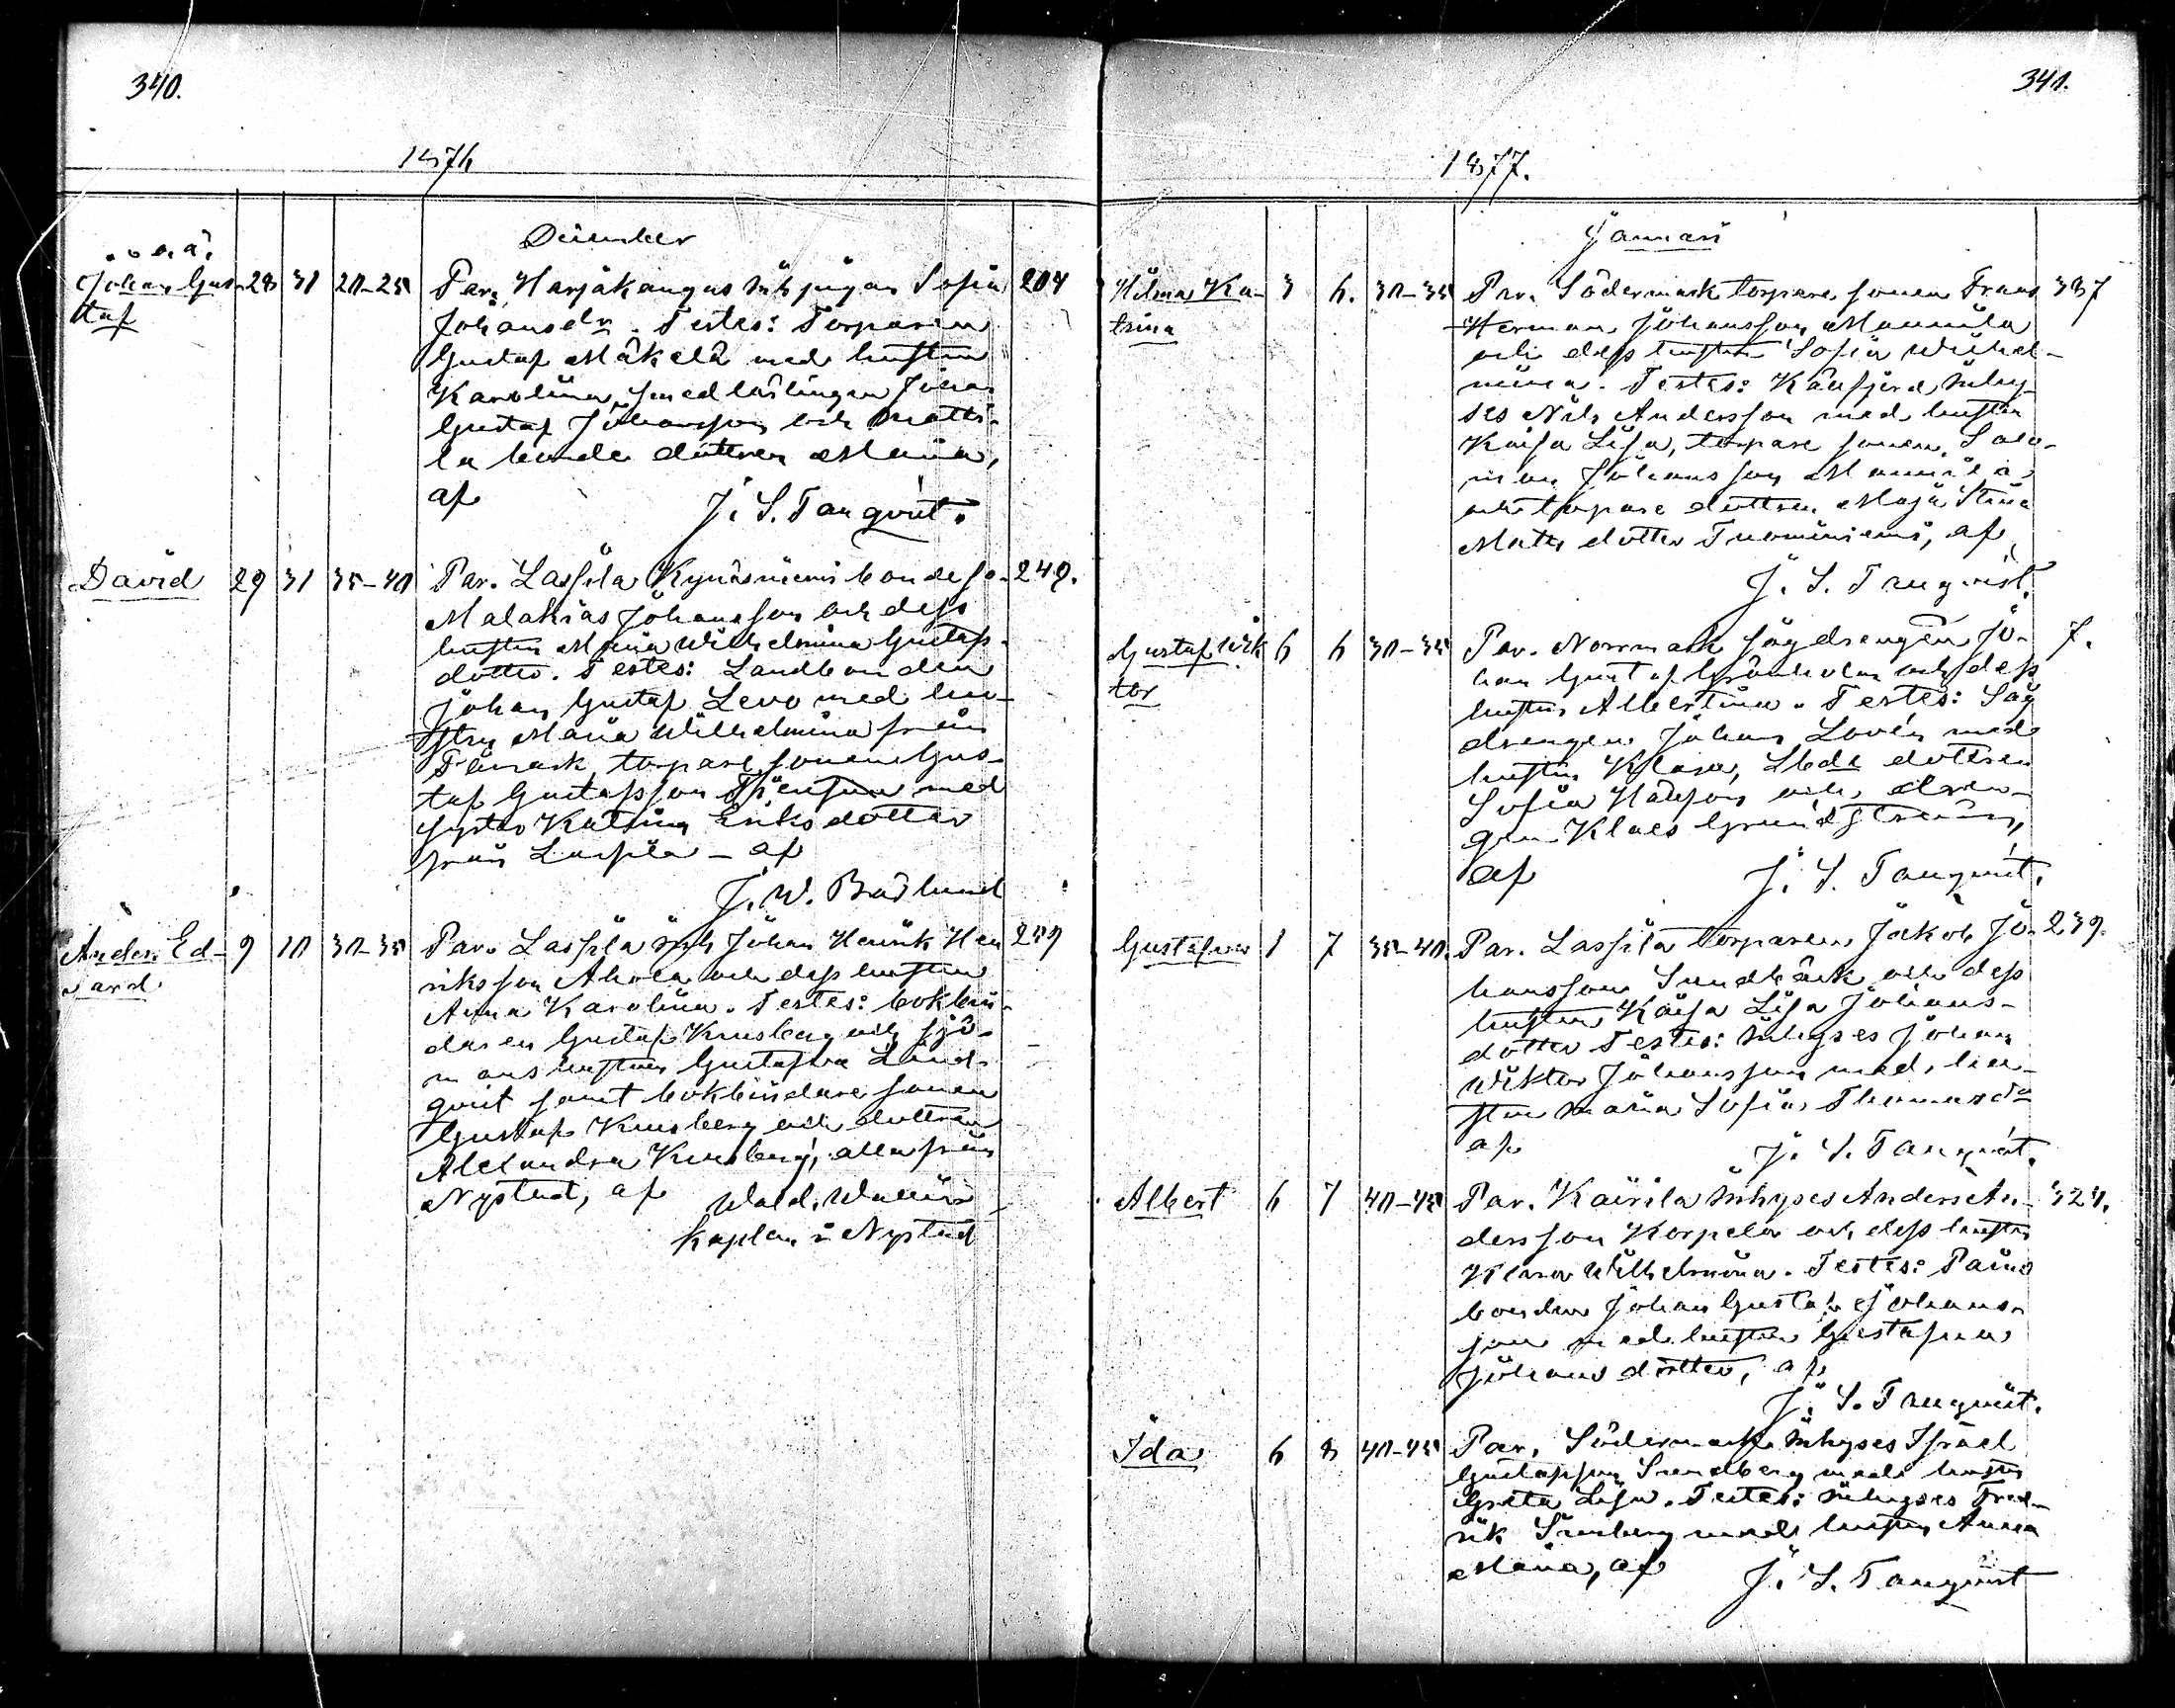 340.
1876
December
o. ä.
Johan Gus-
taf
28 31 20-25
Par. Harjakangas Inh. pigan Sofia
204
Johansdr. Testes: Torparen
Gustaf Mäkelä med hustrun
Karolina, smedlärlingen Johan
Gustaf Johansson och Matti-
la bonde dottren Maria,
af
J. S. Tanqvist.
David
29 31 35-40
Par. Lassila Kynäsniemi bondeso.
249.
Malakias Johansson och dess
hustru Maria Wilhelmina Gustafs-
dotter. Testes: Landbonden
Johan Gustaf Levo med hu-
stru Maria Wilhelmina från
torpare sonen Gus-
taf Gustafsson med
syster Katrina Eriksdotter
från Lassila - af
J. W. Brädlund
Anders Ed-
vard
9 10 30-35
Par. Lassila Inh Johan Henrik Hen
249
riksson Ahola och dess hustru
Anna Karolina. Testes: bokbin-
daren Gustaf Krusberg och sjö-
mans hustrun Gustafva Lind-
qvist samt bokbindare sonen
Gustaf Krusberg och dottren
Alexandra Krusberg, alla från
Nystad, af
Wald. Wallin
Kaplan i Nystad
341.
1877.
Januari
Hilma Ka-
trina
3 6. 30-35
Par. Södermark torpare sonen Frans
337
Herman Johansson Mannila
och dess hustru Sofia Wilhel-
mina. Testes: Inhy-
ses Nils Andersson med hustru
Kaisa Lisa, torpare sonen Salo-
mon Johansson Mannila
och torpare dottren Maja Stina
Mattsdotter Tuominiemi, af
J. S. Tanqvist.
Gustaf Wik
tor
6 6 30-35
Par. Norrmark sågdrengen Jo-
7.
han Gustaf Grönholm och dess
hustru Albertina. Testes: Såg
drengen Johan Lovén med
hustru Klara, Lbde dottren
Sofia och dren-
gen Klaes Grundström,
af
J. S. Tanqvist.
Gustafva
1 7 35-40.
Par. Lassila torparen Jakob Jo-
239.
hansson Sundbäck och dess
hustru Kaisa Lisa Johans-
dotter Testes: Inhyses Johan
Wiktor Johansson med hu-
stru Maria Sofia Thomasdr
af
J. S. Tanqvist.
Albert
6 7 40-45
Par. Kairila Inhyses Anders An-
324.
dersson Korpela och dess hustru
Klara Wilhelmina. Testes:
bonden Johan Gustaf Johans-
son med hustru Gustafva
Johansdotter, af
J. S. Tanqvist.
Ida
6 8 40-45
Par. Södermark Inhyses Israel
Gustafsson Sundberg med hustru
Greta Lisa. Testes: Inhyses Fred-
rik med hustru Anna
Maria, af
J. S. Tanqvist